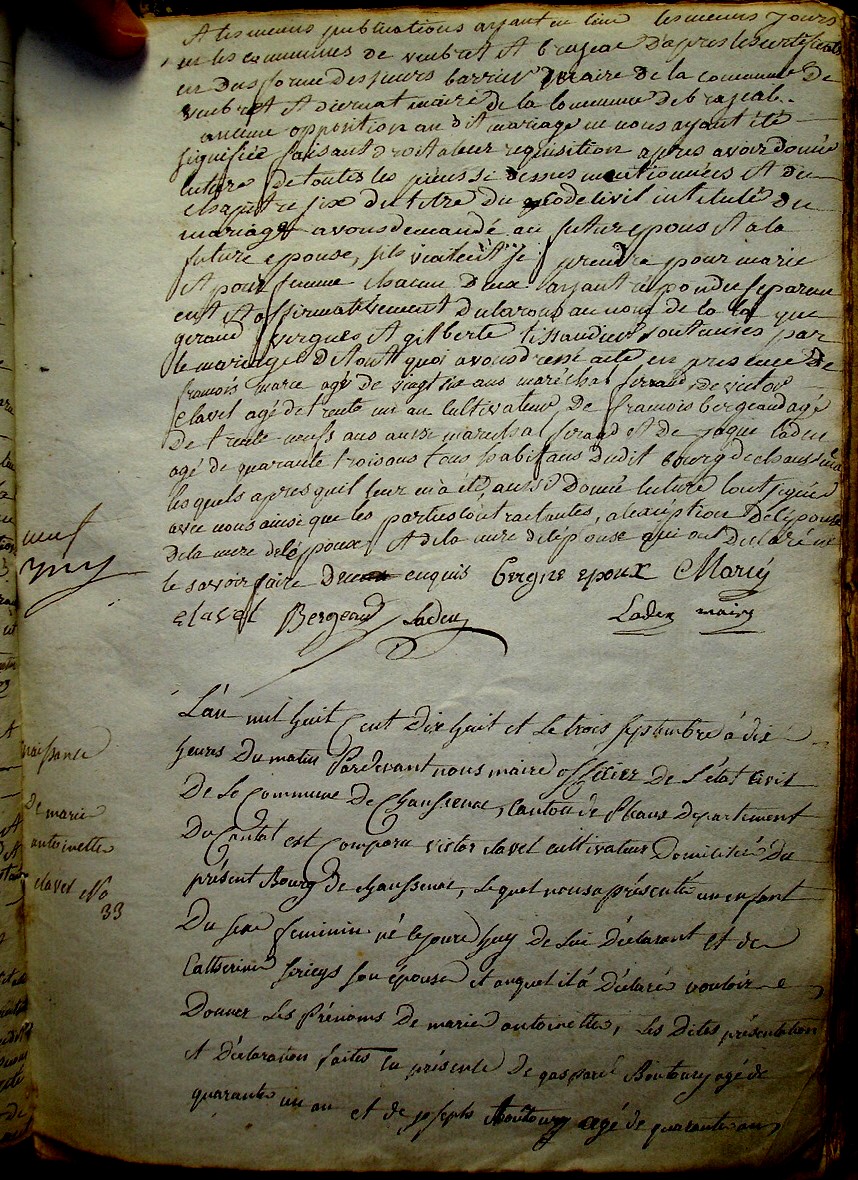 A les memes publications ayant eu lieu les memes jours
en les communes de veubret et brajeac d'apres les certificats
en dus forme des sieurs barrier maire de la commune de
veubret et diernat maire de la commune de brajeal.
aucune opposition au dit mariage ne nous ayant été
signifiée faisant droit a leur requisition apres avoir donné
lecture de toutes les pieces si dessus mentionnées et du
chapitre six du titre du code civil intitulé du
mariage avons demandé au futur epous et a la
future epouse, sils veulent se prendre pour marie
et pour femme chacun d'eux ayant repondu separem
ent et affirmativement declarons au nom de la loy que
geraud vergnes et gilberte tissandier sont unies par
le mariage De tout quoi avons dressé acte en presence de
framois marce agé de vingt six ans maréchal ferrand de victor
clavel agé de trente un an cultivateur, De framois bergeaud agé
De trente neufs ans aussi marechal ferand et de jaque laden
agé de quarante trois ans tous habitans dudit bourg de chaussenac
lesquels apres quil leur en a été aussi donné lecture lont signé
avec nous ainsi que les parties contractantes, a l'exception De l'épouse
De la mere de l'époux, et de la mere de l'épouse qui ont declaré ne
le savoir faire De enquis bergne epoux Marcy
clavel Bergeaud Laden Laden maire
neuf
L'án mil huit Cent Dix huit et le trois septembre à dix
heures Du matin Pardevant nous maire officier De L'état civil
De le Commune De Chaussenac, Canton de Pleaux Departement
Du Cantal est Comparu victor clavel cultivateur Domicilié Du
présent Bourg de chaussenac, lequel nous a présenté un enfant
Du sexe feminin né le jourd huy de Lui Déclarant et de
Catherine serieys son épouse et auquel il a Déclaré vouloir
Donner Les Prénoms De marie antoinette, Les Dites présentation
et Déclaration faites en présence De gaspard Boutoury agé de
quarante un an et de joseph Boutoury agé de quarante ans
naissance
De marie
antoinette
clavel No
33